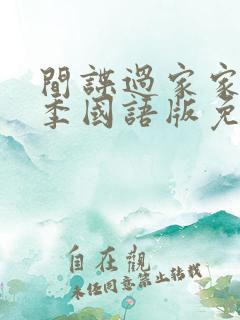 間諜過家家
季國語版免
自在觀
未經同意禁止轉載